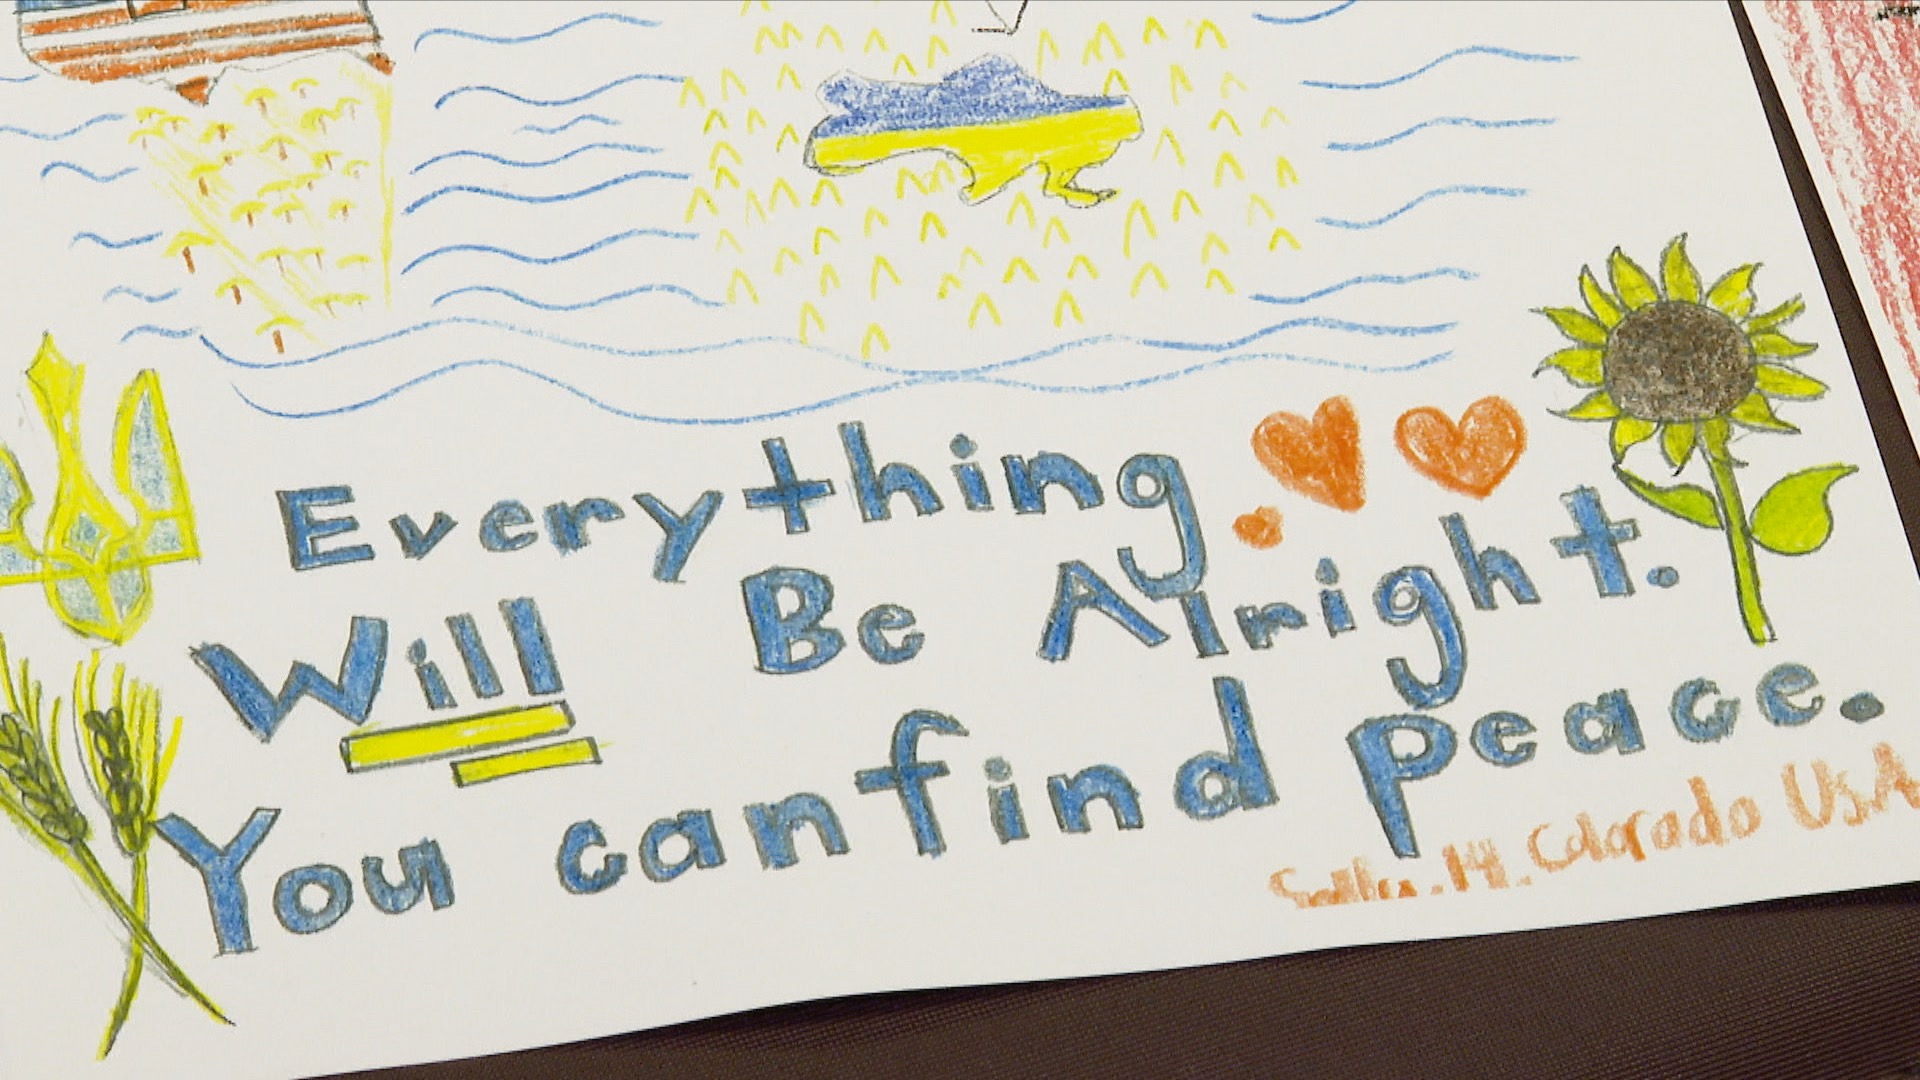 Everything
Will Be Alright.
You can find peace.
Colorado USA